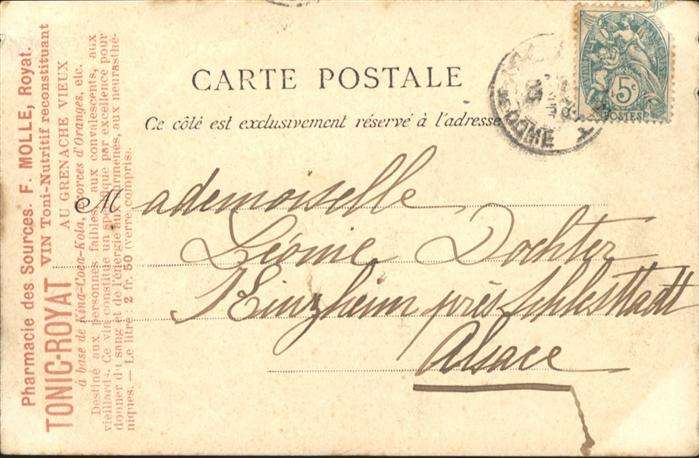 CARTE POSTALE
Ce côté est exclusivement réservé à l'adresse
5c
POSTES
DOME
Mademoiselle
Léonie Dochter
Kinzheim près Schlestadt
Alsace
Pharmacie des Sources. F. MOLLE, Royat.
TONIC-ROYAT
VIN Toni-Nutritif reconstituant
AU GRENACHE VIEUX
à base de Kina-Coca-Kola, Ecorces d'Oranges, etc.
Destiné aux personnes faibles, aux convalescents, aux
vieillards. Ce vin constitue un par excellence pour
donner du sang et de l'énergie aux surmenés, aux neurasthé-
niques. — Le litre 2 fr. 50 (verre compris).